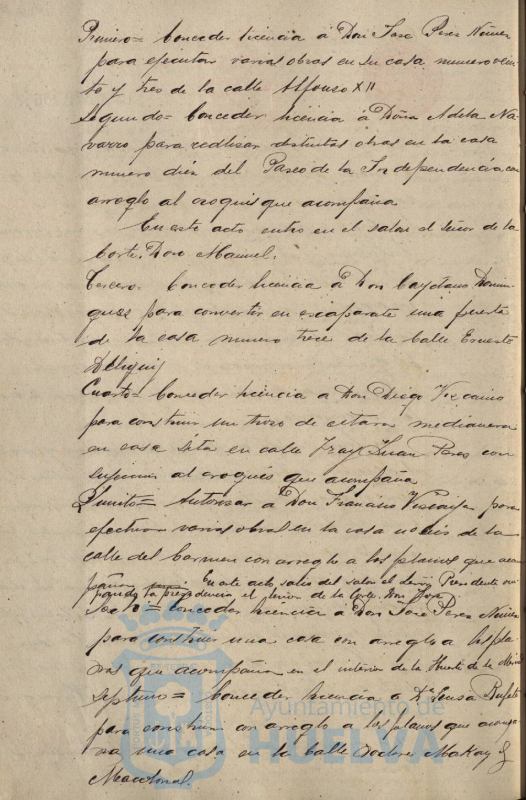 Primero= Conceder licencia á Don José Perez Núñez
para ejecutar varias obras en su casa numero vein-
te y tres de la calle Alfonso XII
Segundo= Conceder licencia á Doña Adela Na-
varro para realizar distintas obras en la casa
numero diez del Paseo de la Independencia con
arreglo al croquis que acompaña
En este acto entro en el salon el Señor de la
Corte, Don Manuel.
Tercero= Conceder licencia á Don Cayetano Domin-
guez para convertir en escaparate una puerta
de la casa numero trece de la Calle Ernesto
Deligny
Cuarto= Conceder licencia á Don Diego Vizcaino
para construir un trozo de citara medianera
en casa sita en calle Fray Juan Perez con
sujecion al croquis que acompaña
Quinto= Autorizar á Don Francisco para
efectuar varias obras en la casa de la
calle del Carmen con arreglo a los planos que acom-
pañan En este acto salio del salon el Señor Presidente ocu-
pando la presidencia el señor de la Corte Don José
Sexto= Conceder licencia á Don José Perez Núñez
para construir una casa con arreglo a los pla-
nos que acompaña en el interior de la Huerta de la
Septimo= Conceder licencia á Dª Luisa
para construir con arreglo a los planos que acompa-
ña, una casa en la Calle Doctor Mackay y
Macdonal.
Ayuntamiento de
HUELVA